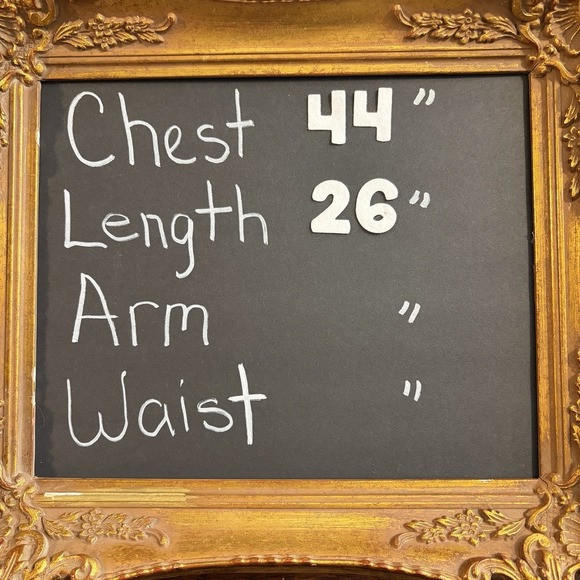 Chest 44"
Length 26"
Arm "
Waist "